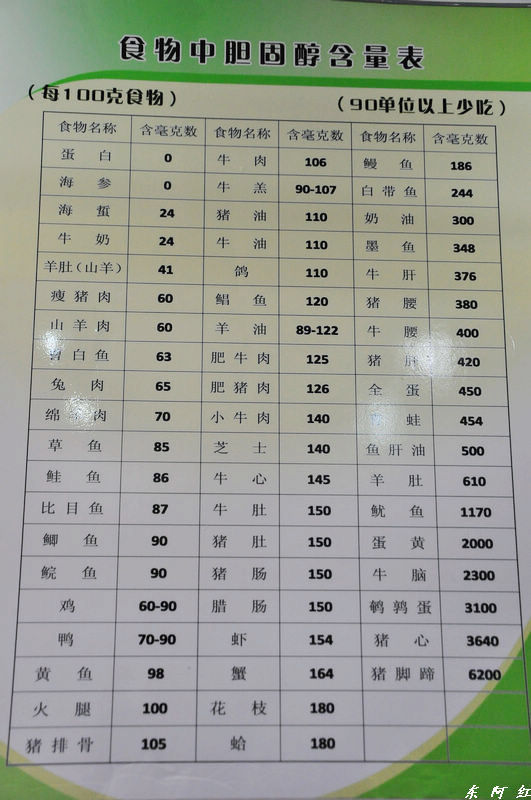 食物中胆固醇含量表
(每100克食物) (90单位以上少吃)
食物名称 含毫克数 食物名称 含毫克数 食物名称 含毫克数
蛋白 0 牛肉 106 鳗鱼 186
海参 0 牛羔 90-107 白带鱼 244
海蜇 24 猪油 110 奶油 300
牛奶 24 牛油 110 墨鱼 348
羊肚(山羊) 41 鸽 110 牛肝 376
瘦猪肉 60 鲳鱼 120 猪腰 380
山羊肉 60 羊油 89-122 牛腰 400
白鱼 63 肥牛肉 125 猪肝 420
兔肉 65 肥猪肉 126 全蛋 450
绵羊肉 70 小牛肉 140 蛙 454
草鱼 85 芝士 140 鱼肝油 500
鲑鱼 86 牛心 145 羊肚 610
比目鱼 87 牛肚 150 鱿鱼 1170
鲫鱼 90 猪肚 150 蛋黄 2000
鲩鱼 90 猪肠 150 牛脑 2300
鸡 60-90 腊肠 150 鹌鹑蛋 3100
鸭 70-90 虾 154 猪心 3640
黄鱼 98 蟹 164 猪脚蹄 6200
火腿 100 花枝 180
猪排骨 105 蛤 180
东阿红